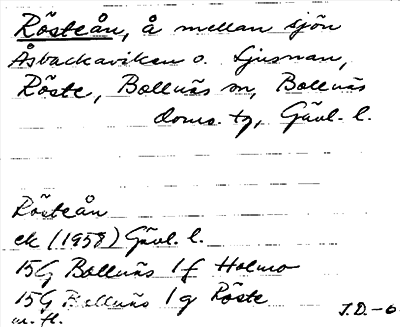 Rösteån, å mellan sjön
Åsbackaviken o. Ljusnan,
Röste, Bollnäs sn, Bollnäs
doms. tg, Gävl. l.
Rösteån
ek (1958) Gävl. l.
15G Bollnäs 1f Holmo
15G Bollnäs 1g Röste
m. fl.
J.D.-6